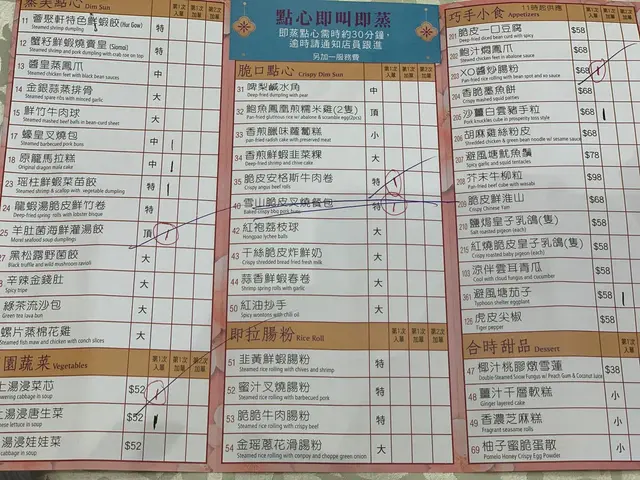 蒸美點心 Dim Sun
11 薈聚軒特色鮮蝦餃(Har Gow) 特
Steamed shrimp dumpling
12 蟹籽鮮蝦燒賣皇(Siomai) 特
Steamed shrimp and pork dumpling with crab roe on top
13 醬皇蒸鳳爪 中
Steamed chicken feet with black bean sauces
14 金銀蒜蒸排骨 大
Steamed spare ribs with minced garlic
15 鮮竹牛肉球 大
Steamed mashed beef balls in bean-curd sheet
17 蠔皇叉燒包 中
Steamed barbecued pork buns
18 原龍馬拉糕 中
Original dragon mala cake
23 瑶柱鮮蝦菜苗餃 特
Steamed shrimp & scallop with vegetable dumpling
24 龍蝦湯脆皮鮮竹卷 特
Deep-fried spring rolls with lobster bisque
25 羊肚菌海鮮灌湯餃 頂
Morel seafood soup dumplings
27 黑松露野菌餃 大
Black truffle and wild mushroom ravioli
辛辣金錢肚 大
Spicy tripe
綠茶流沙包 大
Green tea lava bun
螺片蒸棉花雞 大
Steamed fish maw and chicken with conch slices
園蔬菜 Vegetables
上湯浸菜芯 $52
上湯浸唐生菜 $52
上湯浸娃娃菜 $52
點心即叫即蒸
即蒸點心需時約30分鐘,
逾時請通知店員跟進
另加一服務費
脆口點心 Crispy Dim Sun
31 啤梨鹹水角 中
Deep-fried dumpling with pear
32 鮑魚鳳凰煎糯米雞(2隻) 頂
Pan-fried glutinous rice w/ abalone & scramble egg(2pcs)
33 香煎臘味蘿蔔糕 小
Pan-fried radish cake with preserved meat
34 香煎鮮蝦韭菜粿 大
Deep-fried shrimp and chive cake
35 脆皮安格斯牛肉卷 特
Crispy angus beef rolls
40 雪山脆皮叉燒餐包 特
Baked crispy bbq pork buns
42 紅袍荔枝球 大
Hongpao lychee balls
43 千絲脆皮炸鮮奶 大
Crispy shredded fried fresh milk
44 蒜香鮮蝦春卷 大
Shrimp spring rolls with garlic
50 紅油抄手 大
Spicy wontons with chili oil
即拉腸粉 Rice Roll
51 韭黃鮮蝦腸粉 特
Steamed rice rolling with chives and shrimp
52 蜜汁叉燒腸粉 特
Steamed rice rolling with barbecued pork
53 脆脆牛肉腸粉 特
Steamed rice rolling with crispy beef
54 金瑤蔥花滑腸粉 大
Steamed rice rolling with conpoy and choppe green onion
巧手小食 11時起供應
Appetizers
201 脆皮一口豆腐 $58
Deep-fried diced bean curd with spicy
202 鮑汁燜鳳爪 $68
203 XO醬炒腸粉 $68
Pan-fried rice rolling with bean sprot and xo sauce
204 香脆墨魚餅 $68
Crispy mashed squid patties
205 沙薑白雲豬手粒 $68
Pork knuckles cube in prosperity toss style
206 胡麻雞絲粉皮 $68
Shredded chicken & green bean noodle w/ sesame sauce
207 避風塘魷魚鬚 $78
Spicy garlic and squid tentacles
208 芥末牛柳粒 $98
Pan-fried beef cube with wasabi
209 脆皮鮮淮山 $68
Crispy Chinese Yam
210 鹽焗皇子乳鴿(隻) $68
Salt roasted pigeon (each)
215 紅燒脆皮皇子乳鴿(隻) $68
Crispy roasted baby pigeon (each)
103 涼伴雲耳青瓜 $58
Cool with cloud fungus and cucumber
361 避風塘茄子 $58
Typhoon shelter eggplant
126 虎皮尖椒 $58
Tiger pepper
合時甜品 Dessert
47 椰汁桃膠燉雪蓮 $38
Double-Steamed Snow Fungus w/ Peach Gum & Coconut Juice
48 薑汁千層軟糕 小
Ginger layered cake
49 香濃芝麻糕 小
Fragrant sesame
69 柚子蜜脆蛋散 小
Pomelo Honey Crispy Egg Powder